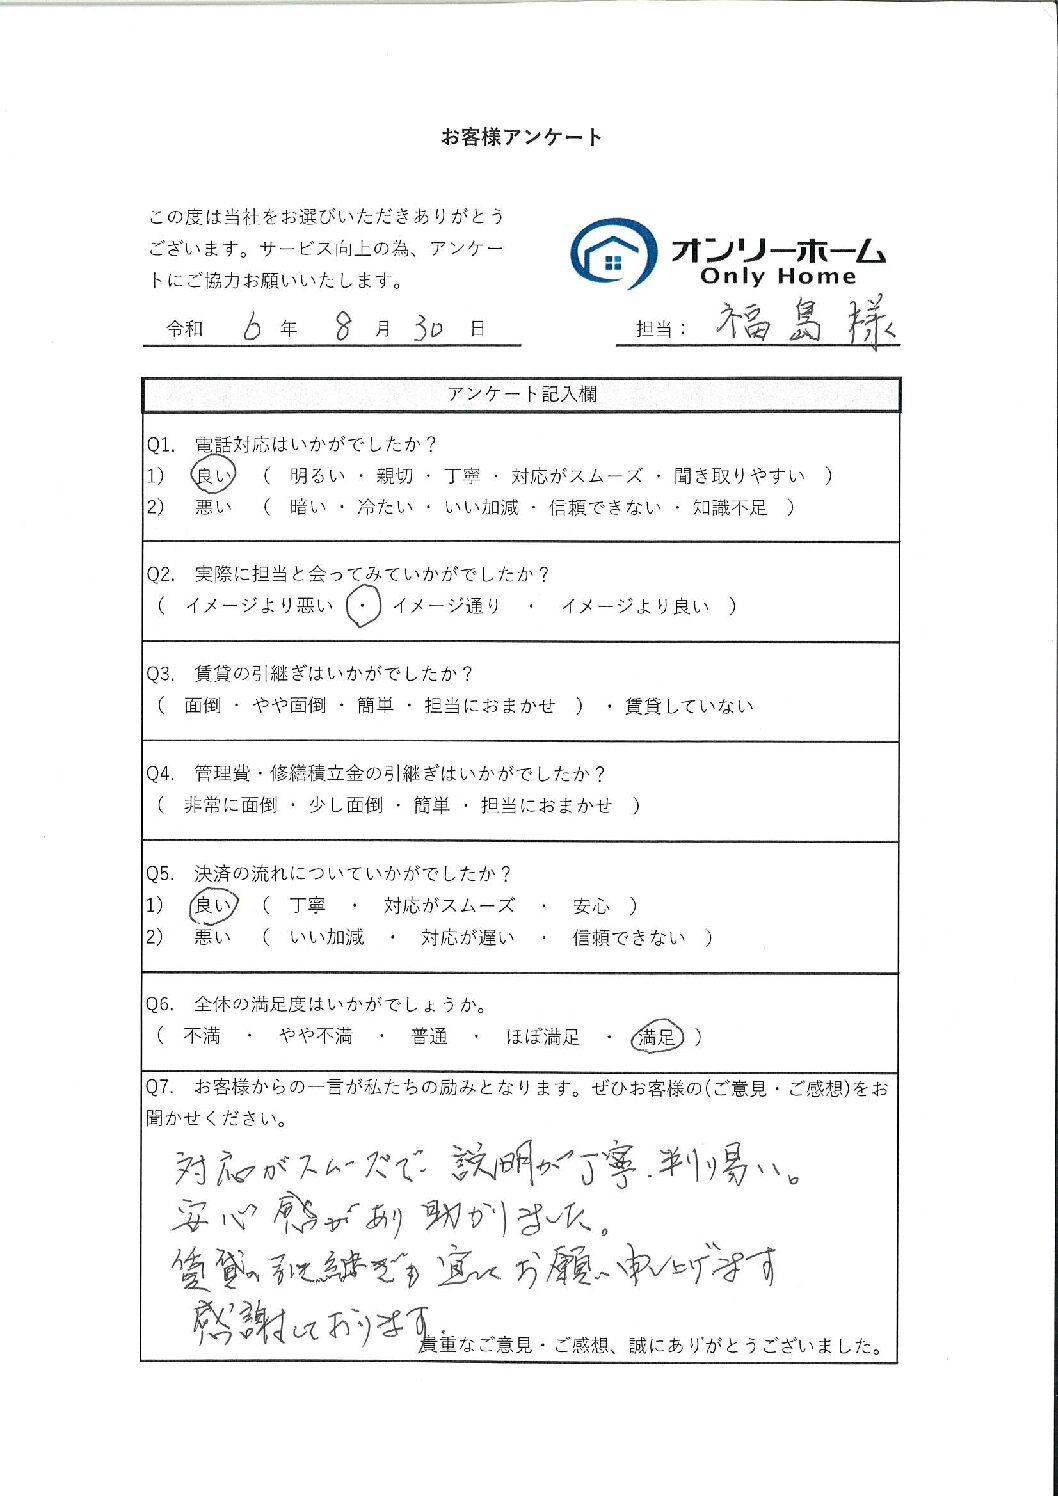 お客様アンケート
この度は当社をお選びいただきありがとう
ございます。サービス向上の為、アンケー
トにご協力お願いいたします。
オンリーホーム
Only Home
令和 6 年 8 月 30 日
担当： 福島様
アンケート記入欄
Q1. 電話対応はいかがでしたか？
1) 良い （ 明るい ・ 親切 ・ 丁寧 ・ 対応がスムーズ ・ 聞き取りやすい ）
2) 悪い （ 暗い ・ 冷たい ・ いい加減 ・ 信頼できない ・ 知識不足 ）
Q2. 実際に担当と会ってみていかがでしたか？
（ イメージより悪い ・ イメージ通り ・ イメージより良い ）
Q3. 賃貸の引継ぎはいかがでしたか？
（ 面倒 ・ やや面倒 ・ 簡単 ・ 担当におまかせ ） ・ 賃貸していない
Q4. 管理費・修繕積立金の引継ぎはいかがでしたか？
（ 非常に面倒 ・ 少し面倒 ・ 簡単 ・ 担当におまかせ ）
Q5. 決済の流れについていかがでしたか？
1) 良い （ 丁寧 ・ 対応がスムーズ ・ 安心 ）
2) 悪い （ いい加減 ・ 対応が遅い ・ 信頼できない ）
Q6. 全体の満足度はいかがでしょうか。
（ 不満 ・ やや不満 ・ 普通 ・ ほぼ満足 ・ 満足 ）
Q7. お客様からの一言が私たちの励みとなります。ぜひお客様の(ご意見・ご感想)をお
聞かせください。
対応がスムーズで、説明が丁寧、判り易い。
安心感があり助かりました。
賃貸の引き継ぎも宜しくお願い申し上げます
感謝しております。
貴重なご意見・ご感想、誠にありがとうございました。